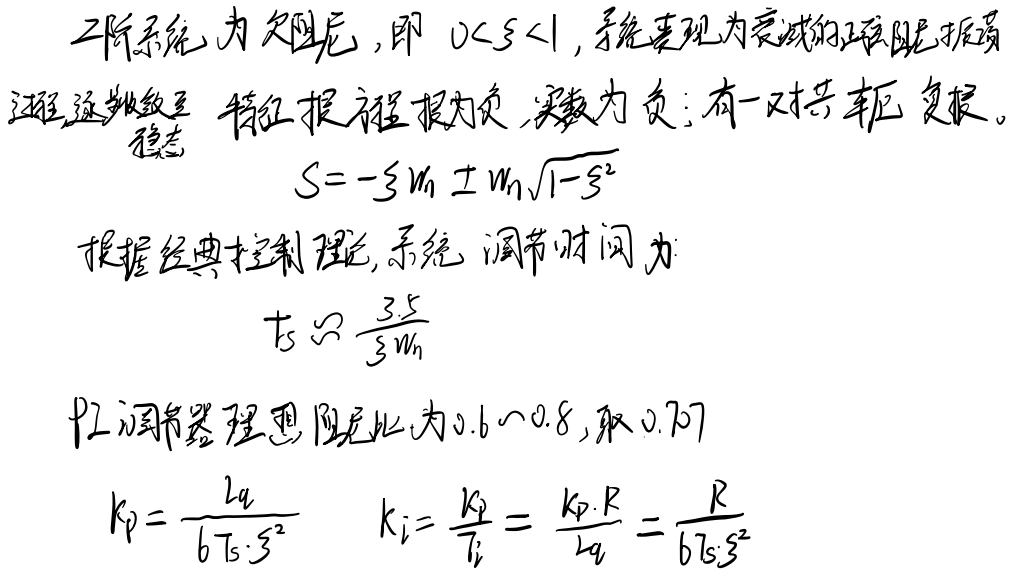 二阶系统为欠阻尼,即 0<ξ<1,系统表现为衰减的正弦阻尼振荡
过程,逐步收敛至稳态 特征根方程根为负,实数为负;有一对共轭复根。
S=-ξWn±Wn√(1-ξ²)
根据经典控制理论,系统调节时间为:
ts≈3.5/(ξWn)
PI调节器理想阻尼比为0.6~0.8,取0.707
Kp=Lq/(6Ts·ξ²) Ki=Kp/Ti=Kp·R/Lq=R/(6Ts·ξ²)